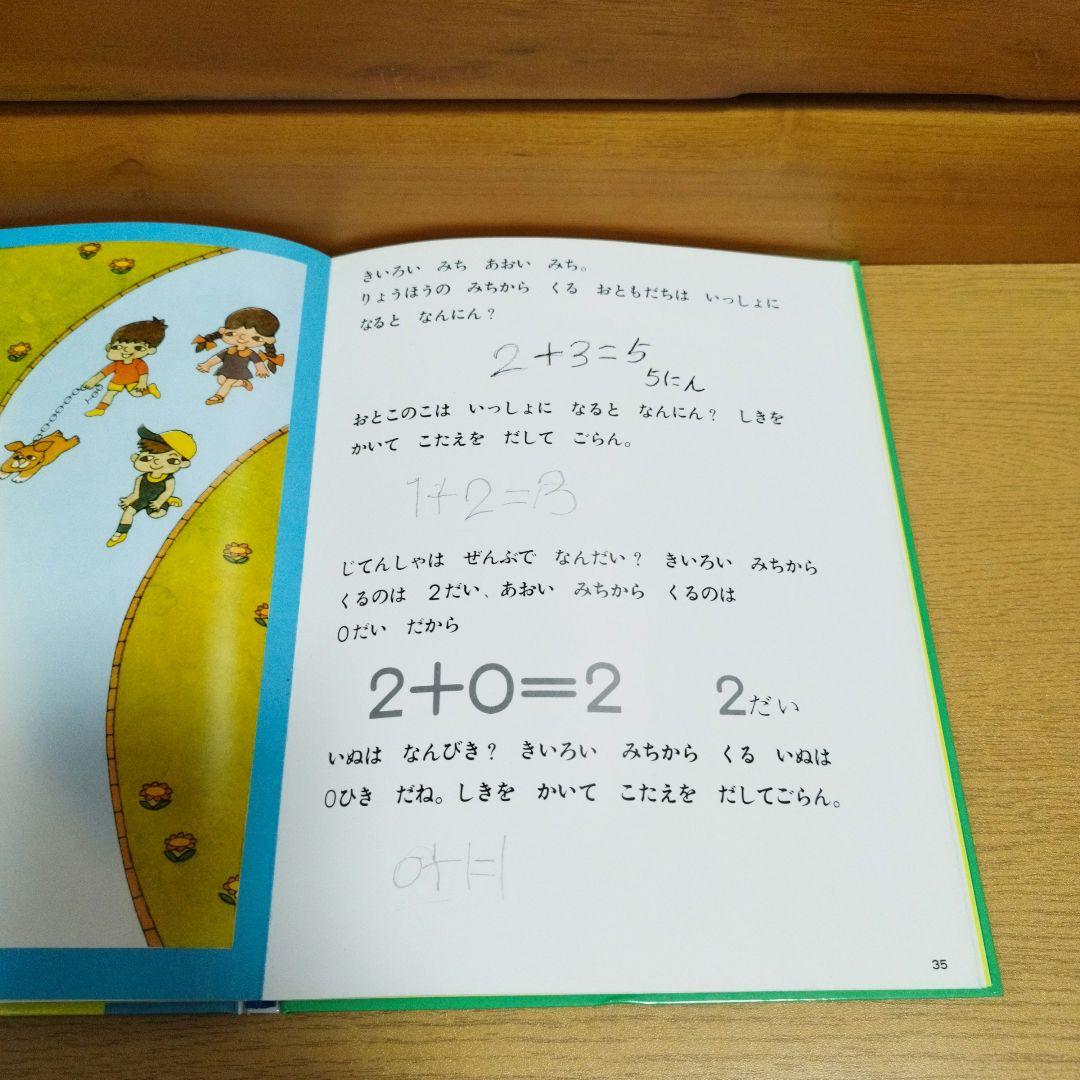 きいろい みち あおい みち。
りょうほうの みちから くる おともだちは いっしょに
なると なんにん？
2+3=5
5にん
おとこのこは いっしょに なると なんにん？ しきを
かいて こたえを だして ごらん。
1+2=3
じてんしゃは ぜんぶで なんだい？ きいろい みちから
くるのは 2だい、あおい みちから くるのは
0だい だから
2+0=2 2だい
いぬは なんびき？ きいろい みちから くる いぬは
0ひき だね。しきを かいて こたえを だしてごらん。
0+1=1
35